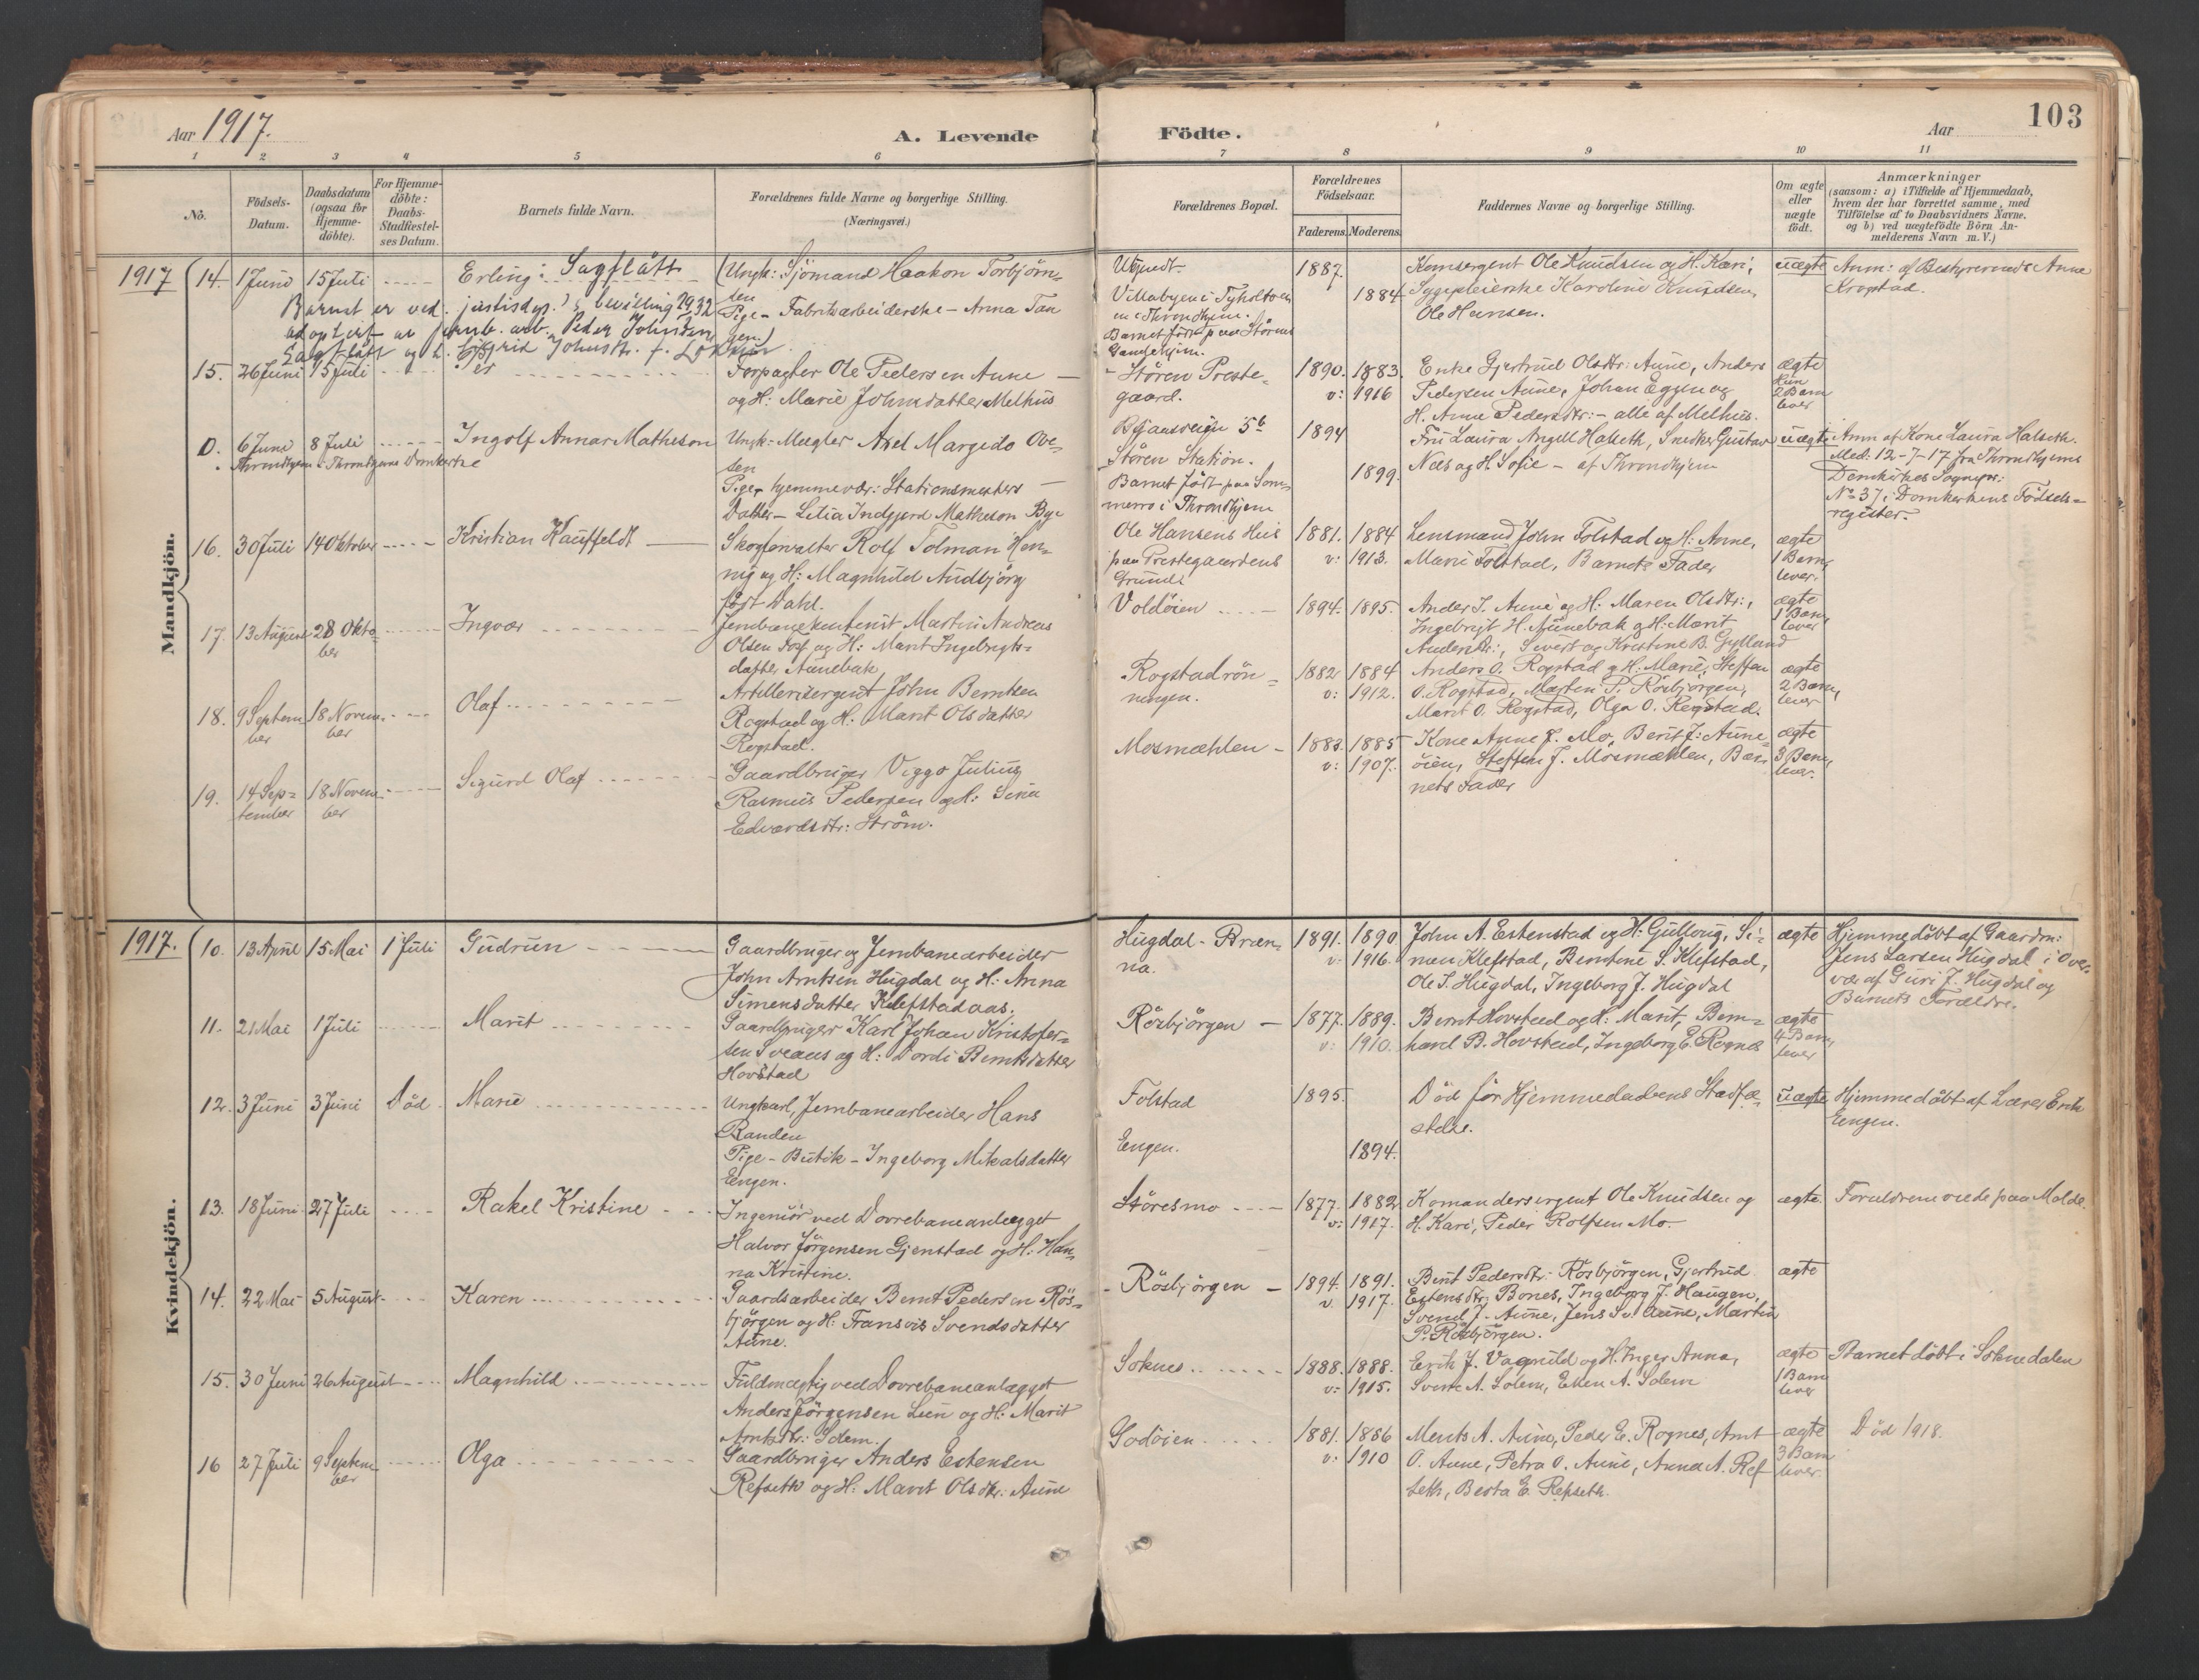 103
Aar 1917.
A. Levende
Födte.
Aar
1
2
3
4
5
6
7
8
9
10
11
No.
Födsels-
Datum.
Daabsdatum
(ogsaa for
Hjemme-
döbte).
For Hjemme-
döbte:
Daabs-
Stadfæstel-
ses Datum.
Barnets fulde Navn.
Forældrenes fulde Navne og borgerlige Stilling.
(Næringsvei.)
Forældrenes Bopæl.
Forældrenes
Födselsaar.
Faderens.
Moderens.
Faddernes Navne og borgerlige Stilling.
Om ægte
eller
uægte
födt.
Anmærkninger
(saasom: a) i Tilfælde af Hjemmedaab,
hvem der har forrettet samme, med
Tilföielse af to Daabsvidners Navne.
og b) ved uægtefödte Börn An-
melderens Navn m. V.)
Mandkjön.
1917
14. 1 Juni 15 Juli
Erling: Sagflått
Barnet er ved justisdep.s bevilling 1932
adoptert av jernb. arb. Peder Johnsen
Sagflått og h.
(Ungk: Sjömand Haakon Torbjörn-
sen
Pige - Fabrikarbeiderske - Anna Tan
gen)
Ubjendt
Villabyen i Tyholtvei
en i Throndhjem.
Barnet födt paa Störens
1887.
1884
Komsergent Ole Knudsen og H. Kari,
Sygepleierske Karoline Knudsen,
Ole Hansen.
uægte
Anm: af Bestyrerinde Anne
Krogstad.
15. 26 Juni 15 Juli
Forpagter Ole Pedersen Aune
og H: Marie Johnsdatter Melhus
Stören Preste-
gaard.
1890. 1883.
v: 1916
Enke Gjertrud Olsdtr: Aune, Anders
Pedersen Aune, Johan Eggen og
H. Anne Pedersdtr: - alle af Melhus.
ægte
2 Barn
lever
D. 6 Juni 8 Juli
Throndhjem i Throndhjems Domkirke
Ingolf Annar Matheson
Ungk: Mægler Axel Margido Ove-
sen
Pige, hjemmevær: Stationsmesters
Datter - Lilia Indgjerd Matheson Bye
Stören Station.
Barnet födt paa Som-
merro i Throndhjem
1894
1899.
Fru Laura Angell Halseth, Snedker Gustav
Næs og H. Sofie - af Throndhjem
uægte
Anm af Kone Laura Halseth.
Med: 12-7-17 fra Throndhjems
Domkirkes Sognepr:
No 37 i Domkirkens Födsels-
register.
16. 30 Juli 14 Oktober
Kristian Kauffeldt
Skogforvalter Rolf Tolman Hen-
nig og H: Magnhild Audbjörg
födt Dahl.
Ole Hansens Hus
paa Prestegaardens
Grund
1881. 1884
v: 1913.
Lensmand John Folstad og H: Anne,
Marie Folstad, Barnets Fader
ægte
1 Barn,
lever.
17. 13 August 28 Okto-
ber
Ingvar
Jernbanekontorist Martin Andreas
Olsen Foss og H: Marit Ingebrigts-
datter Aunebak
Voldöien
1894. 1895.
Anders J. Aune og H: Maren Olsdtr:,
Ingebrigt H. Aunebak og H: Marit
Andersdtr:, Sivert og Kristine B. Gylland
ægte
1 Barn,
lever
18. 9 Septem
ber
18 Novem-
ber
Olaf
Artillerisergent John Berntsen
Rogstad og H: Marit Olsdatter
Rogstad.
Rogstadrön-
ningen.
1882 1884
v: 1912.
Anders O. Rogstad og H: Marie, Steffen
O. Rogstad, Marten P. Rösbjörgen,
Marit O. Rogstad, Olga O. Rogstad.
ægte
2 Barn,
lever
19. 14 Sep-
tember
18 Novem-
ber
Sigurd Olaf
Gaardbruger Viggo Julius
Rasmus Pedersen og H: Sina
Edvardsdtr: Ström.
Mosmæhlen
1883. 1885
v: 1907.
Kone Anne J. Mo, Berit J: Aune-
öien, Steffen J. Mosmæhlen, Bar-
nets Fader
ægte
3 Barn,
lever.
Kvindekjön.
1917.
10. 13 April 15 Mai 1 Juli
Gudrun
Gaardbruger og Jernbanearbeider
John Arntsen Hugdal og H: Anna
Simensdatter Klefstadaas.
Hugdal - Bræn-
na.
1891. 1890
v: 1916.
John A. Estenstad og H: Gullaug, Si-
men Klefstad, Berntine S. Klefstad,
Ole S. Hugdal, Ingeborg J. Hugdal
ægte
Hjemmedöbt af Gaardm:
Jens Larsen Hugdal i Over-
vær af Guri J. Hugdal og
Barnets Forældre.
11. 21 Mai 1 Juli
Marit
Gaardbruger Karl Johan Kristofer-
sen Sveaas og H: Dordi Berntsdatter
Hovstad
Rösbjörgen
1877. 1889.
v: 1910.
Bernt Hovstad og H: Marit, Bern-
hard B. Hovstad, Ingeborg E. Rognes
ægte
4 Barn,
lever
12. 3 Juni 3 Juni Död.
Marie
Ungkarl, Jernbanearbeider Hans
Randen
Pige - Butik - Ingeborg Mikalsdatter
Engen.
Folstad
Engen.
1895.
1894.
Död för Hjemmedaabens Stadfæ-
stelse.
uægte
Hjemmedöbt af Lærer Erik
Engen.
13. 18 Juni 27 Juli
Rakel Kristine
Ingeniör ved Dovrebaneanlægget
Halvor Jörgensen Gjenstad og H: Han-
na Kristine.
Störesmo
1877. 1882
v: 1917.
Komandersergent Ole Knudsen og
H. Kari, Peder Rolfsen Mo.
ægte
Forældrene viede paa Molde.
14. 22 Mai 5 August
Karen
Gaardsarbeider Bernt Pedersen Rös-
björgen og H: Fransvis Svendsdatter
Aune.
Rösbjörgen
1894. 1891.
v. 1917.
Berit Pedersdtr: Rösbjörgen, Gjertrud
Estensdtr: Bones, Ingeborg J. Haugen,
Svend J. Aune, Jens Sv. Aune, Martin
P. Rösbjörgen.
ægte
15. 30 Juni 26 August
Magnhild
Fuldmægtig ved Dovrebaneanlægget
Anders Jörgensen Lien og H: Marit
Arntsdtr: Solem.
Soknes
1888. 1888.
v: 1915.
Eerik J. Vagnild og H. Inger Anna,
Svend A. Solem, Ellen A. Solem
ægte
1 Barn
lever
Barnet döbt i Soknedalen
16 27 Juli 9 Septem
ber
Olga
Gaardbruger Anders Estensen
Refseth og H: Marit Olsdtr: Aune
Godöien
1881. 1886
v: 1910
Merits A. Aune, Peder E. Rognes, Arnt
O. Aune, Petra O. Aune, Anna A. Ref
seth, Berta E. Refseth.
ægte
3 Barn
lever.
Död 1918.